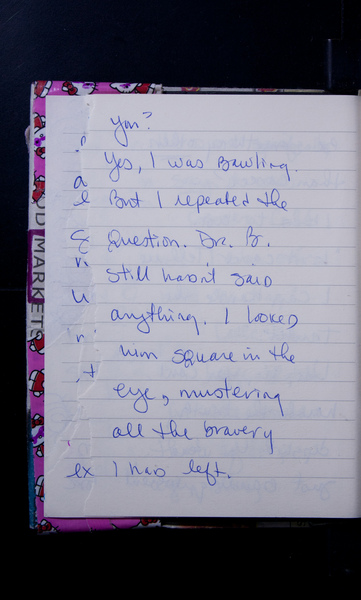 you?
Yes, I was Bawling.
But I repeated the
Question. Dr. B.
still hasn't said
anything. I looked
him square in the
eye, mustering
all the bravery
ex I had left.
D MARKETS